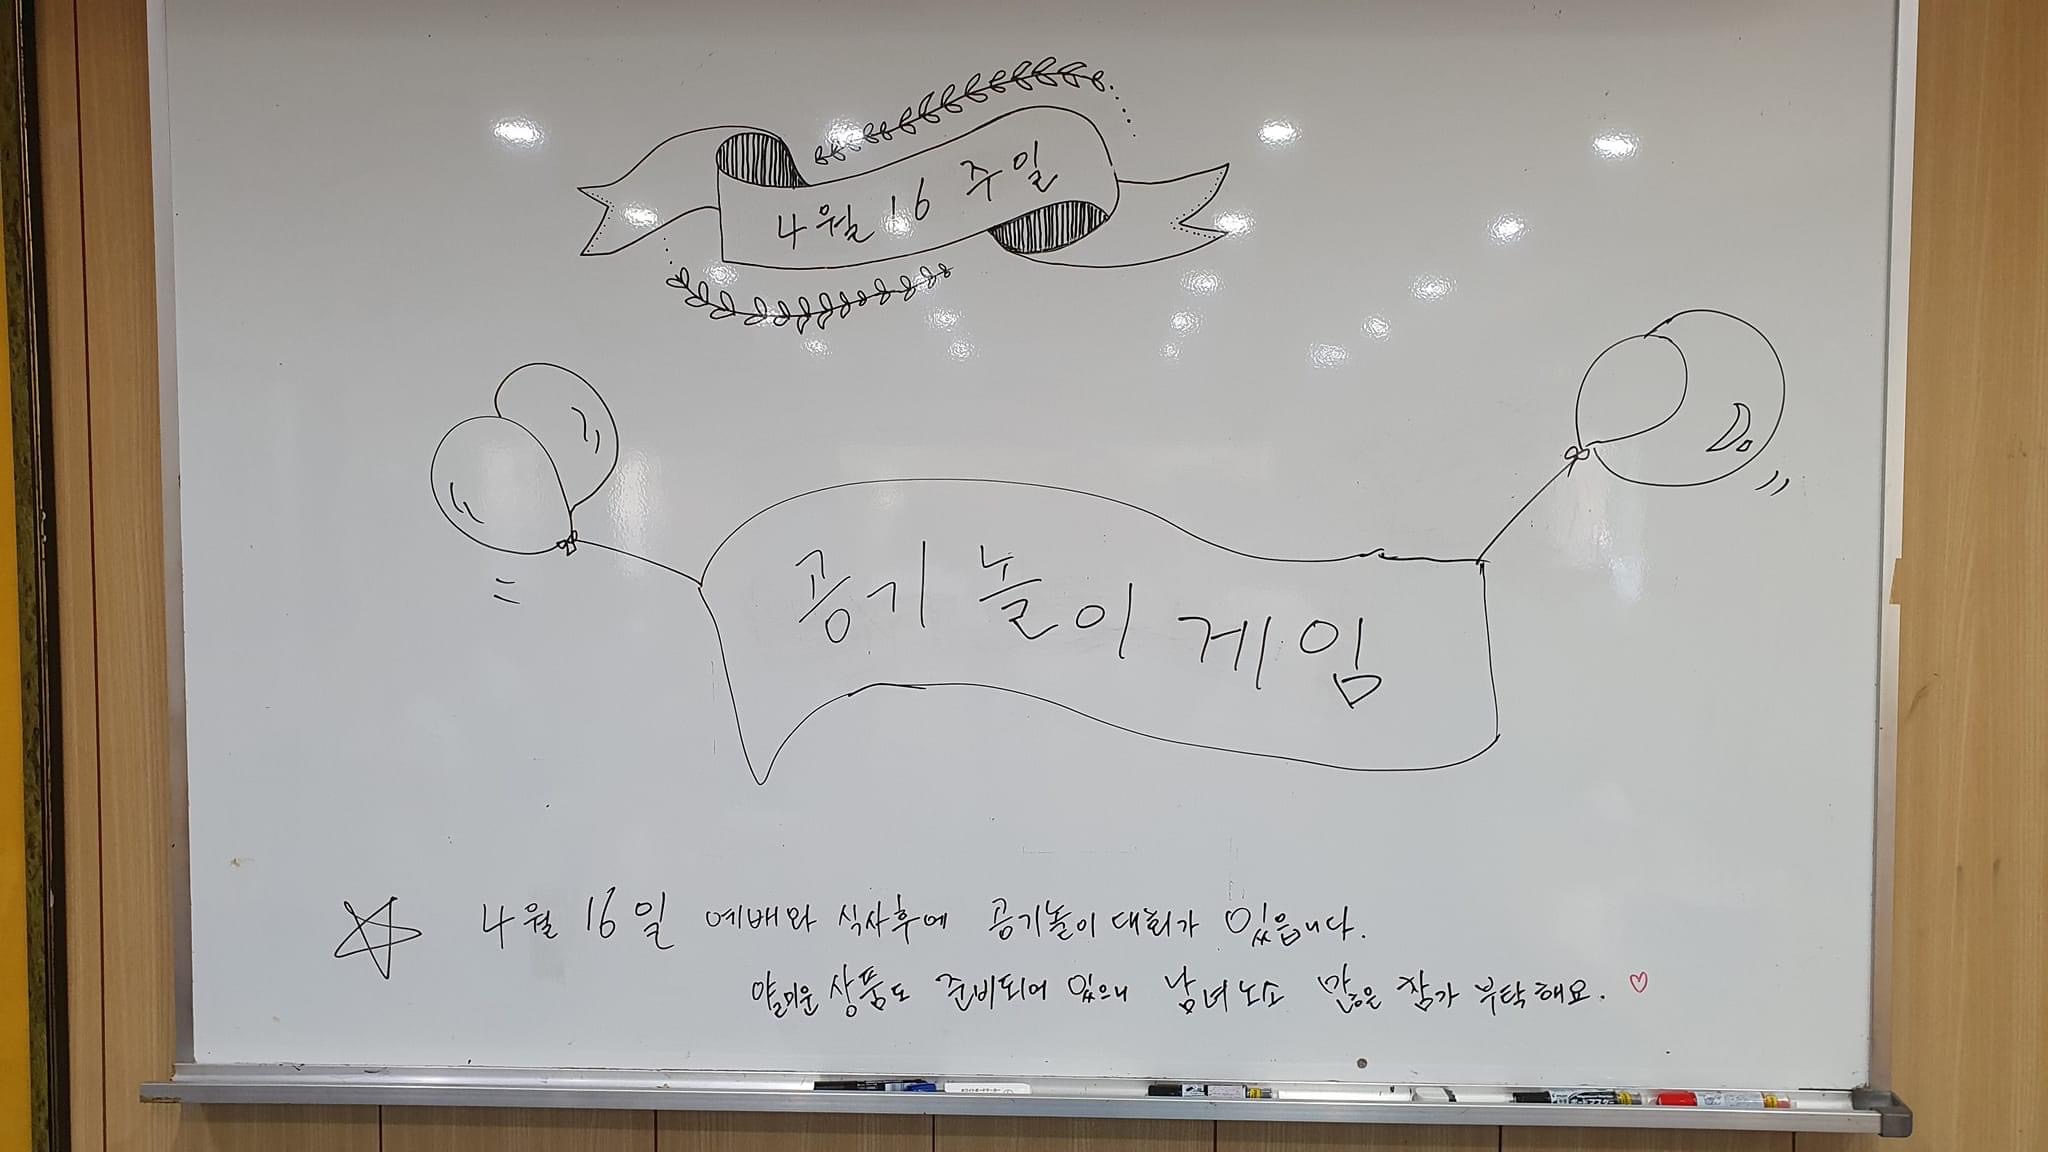 4월 16 주일
공기 놀이 게임
4월 16일 예배와 식사후에 공기놀이 대회가 있읍니다.
얄미운 상품도 준비되어 있으니 남녀노소 많은 참가 부탁해요.